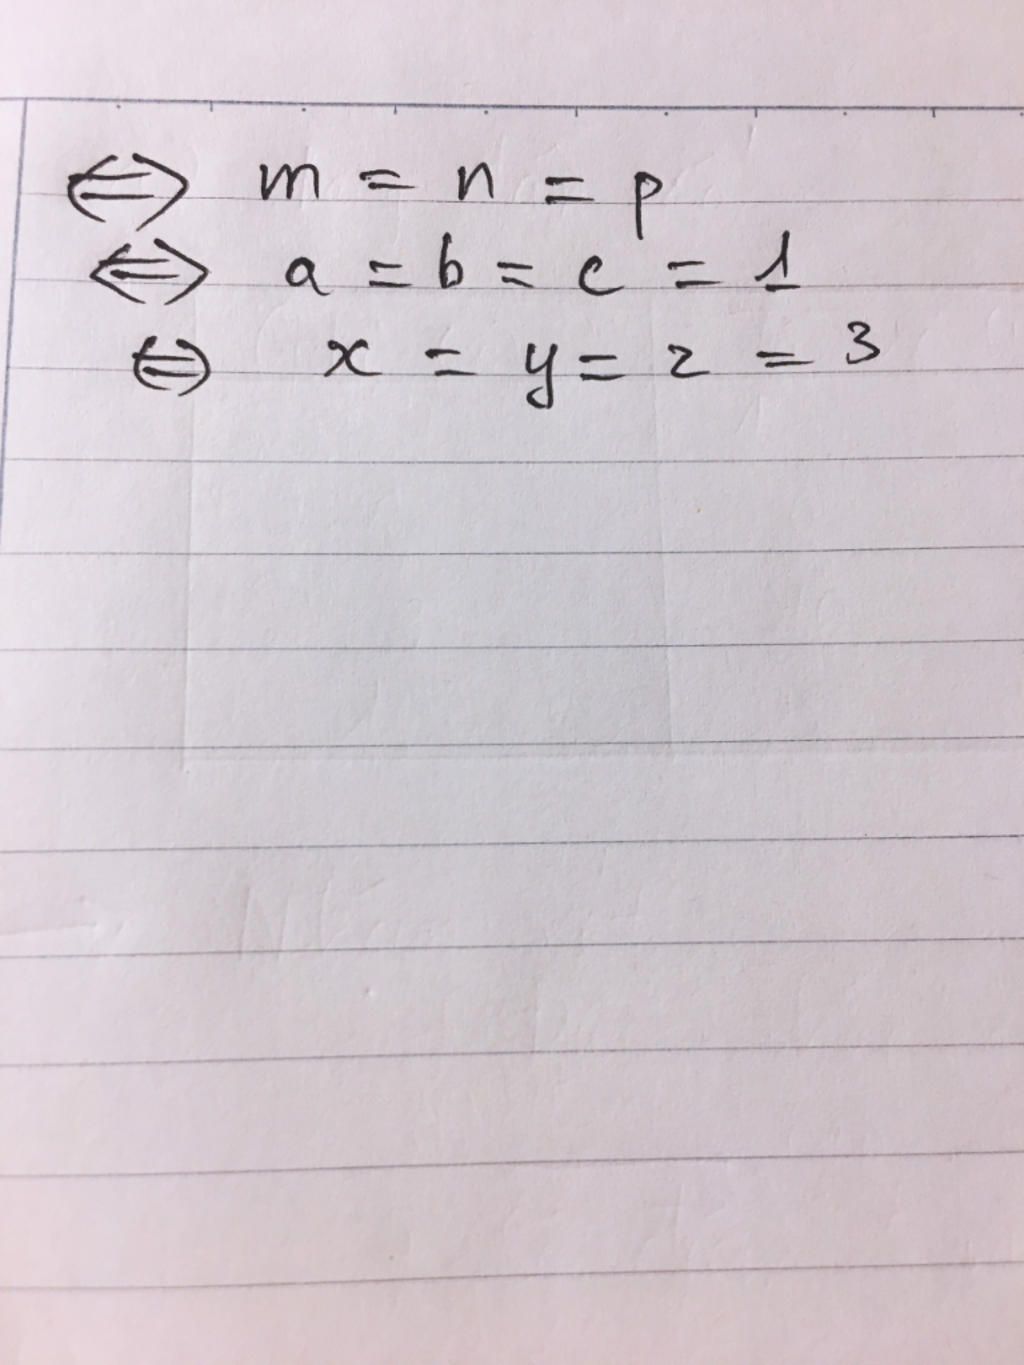 ⇔ m = n = p
⇔ a = b = c = 1
⇔ x = y = z = 3